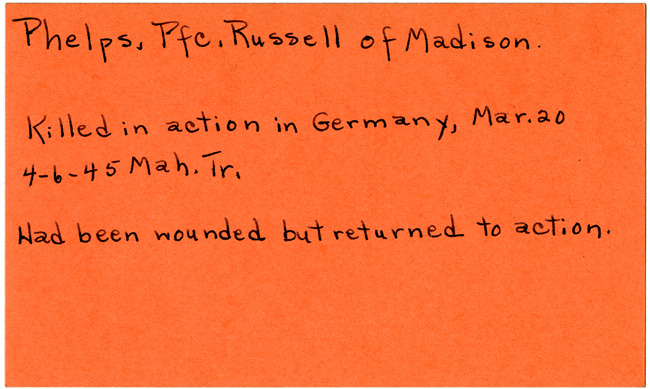 Phelps, Pfc. Russell of Madison.
Killed in action in Germany, Mar. 20
4-6-45 Mah. Tr.
Had been wounded but returned to action.